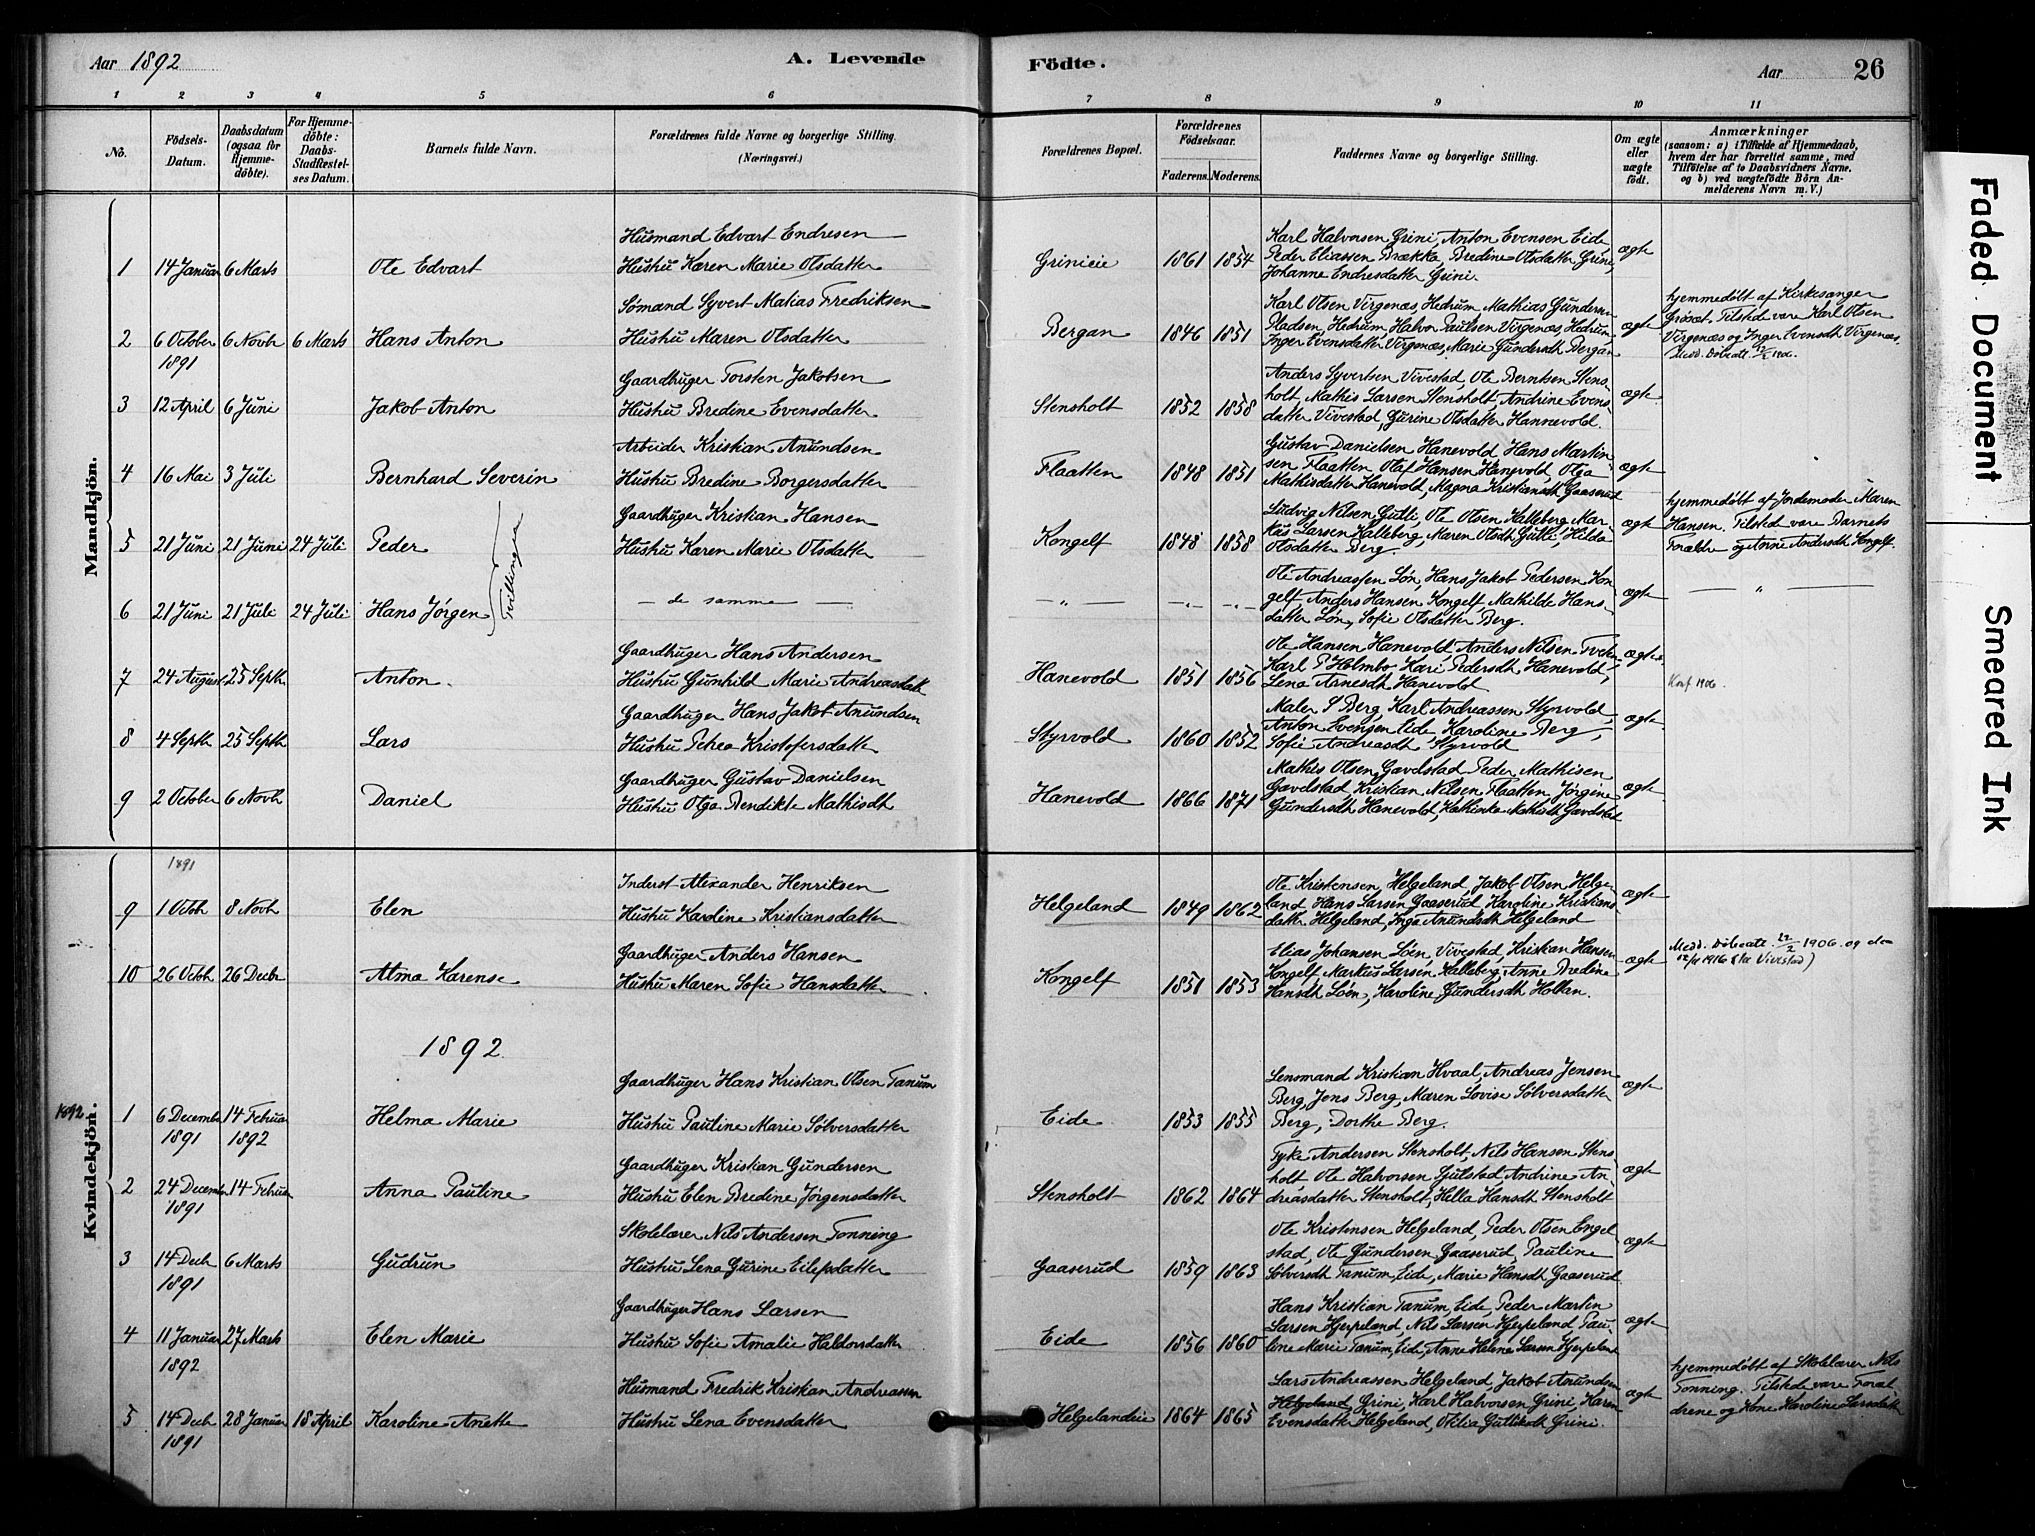 Aar 1892
A. Levende
Födte.
Aar
26
1 2 3 4 5 6 7 8 9 10 11
No.
Födsels-
Datum.
Daabsdatum
(ogsaa for
Hjemme-
døbte).
For Hjemme-
døbte:
Daabs-
Stadfæstel-
ses Datum.
Barnets fulde Navn.
Forældrenes fulde Navne og borgerlige Stilling.
(Næringsvei.)
Forældrenes Bopæl.
Forældrenes
Födselsaar.
Faderens. Moderens.
Faddernes Navne og borgerlige Stilling.
Om ægte
eller
uægte
födt.
Anmærkninger
(saasom: a) i Tilfælde af Hjemmedaab,
hvem der har forrettet samme, med
Tilföielse af to Daabsvidners Navne,
og b) ved uægtefödte Börn An-
melderens Navn m. V.)
Mandkjön.
1 14 Januar 6 Marts Ole Edvart
Husmand Edvart Endresen
Hustru Karen Marie Olsdatter
Grinieie 1861 1854
Karl Halvorsen Grini, Anton Evensen Eide,
Peder Eliassen Brække, Bredine Olsdatter Grini,
Johanne Endresdatter Grini.
ægte
2 6 October 6 Novb 6 Marts Hans Anton
1891
Sømand Syvert Matias Fredriksen
Hustru Maren Olsdatter
Bergan 1846 1851
Karl Olsen Virgenæs, Hedrum, Mathias Gundersen
Pladsen, Hedrum, Halvor Paulsen Virgenæs, Hedrum,
Inger Evensdatter Virgenæs, Marie Gundersdt Bergan
ægte
hjemmedøbt af Kirkesanger
Tilsted vare Karl Olsen
Virgenæs og Inger Evensdt Virgenæs.
3 12 April 6 Juni Jakob Anton
Gaardbruger Torsten Jakobsen
Hustru Bredine Evensdatter
Stensholt 1852 1858
Anders Syvertsen Vivestad, Ole Berntsen Stens-
holt, Mathis Larsen Stensholt, Andrine Evens-
datter Vivestad, Gurine Olsdatter Hannevold.
ægte
4 16 Mai 3 Juli Bernhard Severin
Arbeider Kristian Anundsen
Hustru Bredine Borgersdatter
Flaatten 1848 1851
Gustav Danielsen Hanevold, Hans Martin-
sen Flaatten, Olaf Hansen Hanevold, Olga
Mathisdatter Hanevold, Magna Kristiansdt Gaaserud
ægte
5 21 Juni 21 Juni 24 Juli Peder
Tvillinger
Gaardbruger Kristian Hansen
Hustru Karen Marie Olsdatter
Kongelf 1848 1858
Ludvig Nilsen Gutli, Ole Olsen Kalleberg, Mar-
kus Larsen Kalleberg, Maren Olsdt Gutli, Hilda
Olsdatter Berg
ægte
hjemmedøbt af Jordemoder Maren
Hansen. Tilsted vare Barnets
Forældre og Anne Andersdt Kongelf.
6 21 Juni 21 Juli 24 Juli Hans Jørgen
— de samme —
— „ — — „ — — „ —
Ole Andreassen Løn, Hans Jakob Pedersen Kon-
gelf, Anders Hansen Kongelf, Mathilde Hans-
datter Løn, Sofie Olsdatter Berg.
ægte
— „ —
7 24 August 25 Septb Anton
Gaardbruger Hans Andersen
Hustru Gunhild Marie Andreasdatt
Hanevold 1851 1856
Ole Hansen Hanevold, Anders Nilsen
Karl P Holmbo, Kari Pedersdt Hanevold,
Lena Arnesdt Hanevold
ægte
Konf 1906.
8 4 Septb 25 Septb Lars
Gaardbruger Hans Jakob Anundsen
Hustru Petrea Kristofersdatter
Styrvold 1860 1852
Maler P Berg, Karl Andreassen Styrvold,
Anton Evensen Eide, Karoline Berg,
Sofie Andreasdt Styrvold
ægte
9 2 October 6 Novb Daniel
Gaardbruger Gustav Danielsen
Hustru Olga Bendikte Mathisdt
Hanevold 1866 1871
Mathis Olsen Gavelstad, Peder Mathisen
Gavelstad, Kristian Nilsen Flaatten, Jørgine
Gundersdt Hanevold, Kathinka Mathisdt Gavelstad
ægte
Kvindekjön.
1891
9 1 Octb 8 Novb Elen
Inderst Alexander Henriksen
Hustru Karoline Kristiansdatter
Helgeland 1849 1862
Ole Kristensen Helgeland, Jakob Olsen Helge-
land, Hans Larsen Gaaserud, Karoline Kristians-
datter Helgeland, Inga Anundsdt Helgeland
ægte
10 26 Octb 26 Decbr Alma Karense
Gaardbruger Anders Hansen
Hustru Maren Sofie Hansdatter
Kongelf 1851 1853
Elias Johansen Løen, Vivestad, Kristian Hansen
Kongelf, Markus Larsen Kalleberg, Anne Bredine
Hansdt Løen, Karoline Gundersdt Holkan.
ægte
Medd. Døbeatt. 22/2 1906 og do
1892
1892
1 6 Decembr 14 Februar Helma Marie
1891 1892
Gaardbruger Hans Kristian Olsen Tanum
Hustru Pauline Marie Sølversdatter
Eide 1853 1855
Lensmand Kristian Hvaal, Andreas Jensen
Berg, Jens Berg, Maren Lovise Sølversdatter
Berg, Dorthe Berg.
ægte
2 24 Decembr 14 Februar Anna Pauline
1891
Gaardbruger Kristian Gundersen
Hustru Elen Bredine Jørgensdatter
Stensholt 1862 1864
Tyke Andersen Stensholt, Nils Hansen Stens-
holt, Ole Halvorsen Gulstad, Andrine An-
dreasdatter Stensholt, Hella Hansdt Stensholt
ægte
3 14 Decb 6 Marts Gudrun
1891
Skolelærer Nils Andersen Tonning
Hustru Lena Gurine Eilefsdatter
Gaaserud 1859 1863
Ole Kristensen Helgeland, Peder Olsen Engel-
stad, Ole Gundersen Gaaserud, Pauline
Sølversdt Tanum, Eide, Marie Hansdt Gaaserud
ægte
4 11 Januar 27 Marts Elen Marie
1892
Gaardbruger Hans Larsen
Hustru Sofie Amalie Haldorsdatter
Eide 1856 1860
Hans Kristian Tanum, Eide, Peder Martin
Larsen Hjerpeland, Nils Larsen Hjerpeland, Pau-
line Marie Tanum, Eide, Anne Helene Larsen Hjerpeland
ægte
5 14 Decb 28 Januar 18 April Karoline Anette
1891
Husmand Fredrik Kristian Andreasen
Hustru Lena Evensdatter
Helgelandeie 1864 1865
Lars Andreassen Helgeland, Jakob Anundsen
Helgeland, Grini, Karl Halvorsen Grini, Karen
Evensdatter Helgeland, Otilia Gulliksdt Grini.
ægte
hjemmedøbt af Skolelærer Nils
Tonning. Tilstede vare Foræl-
drene og Kone Karoline Larsdatter
Faded Document
Smeared Ink